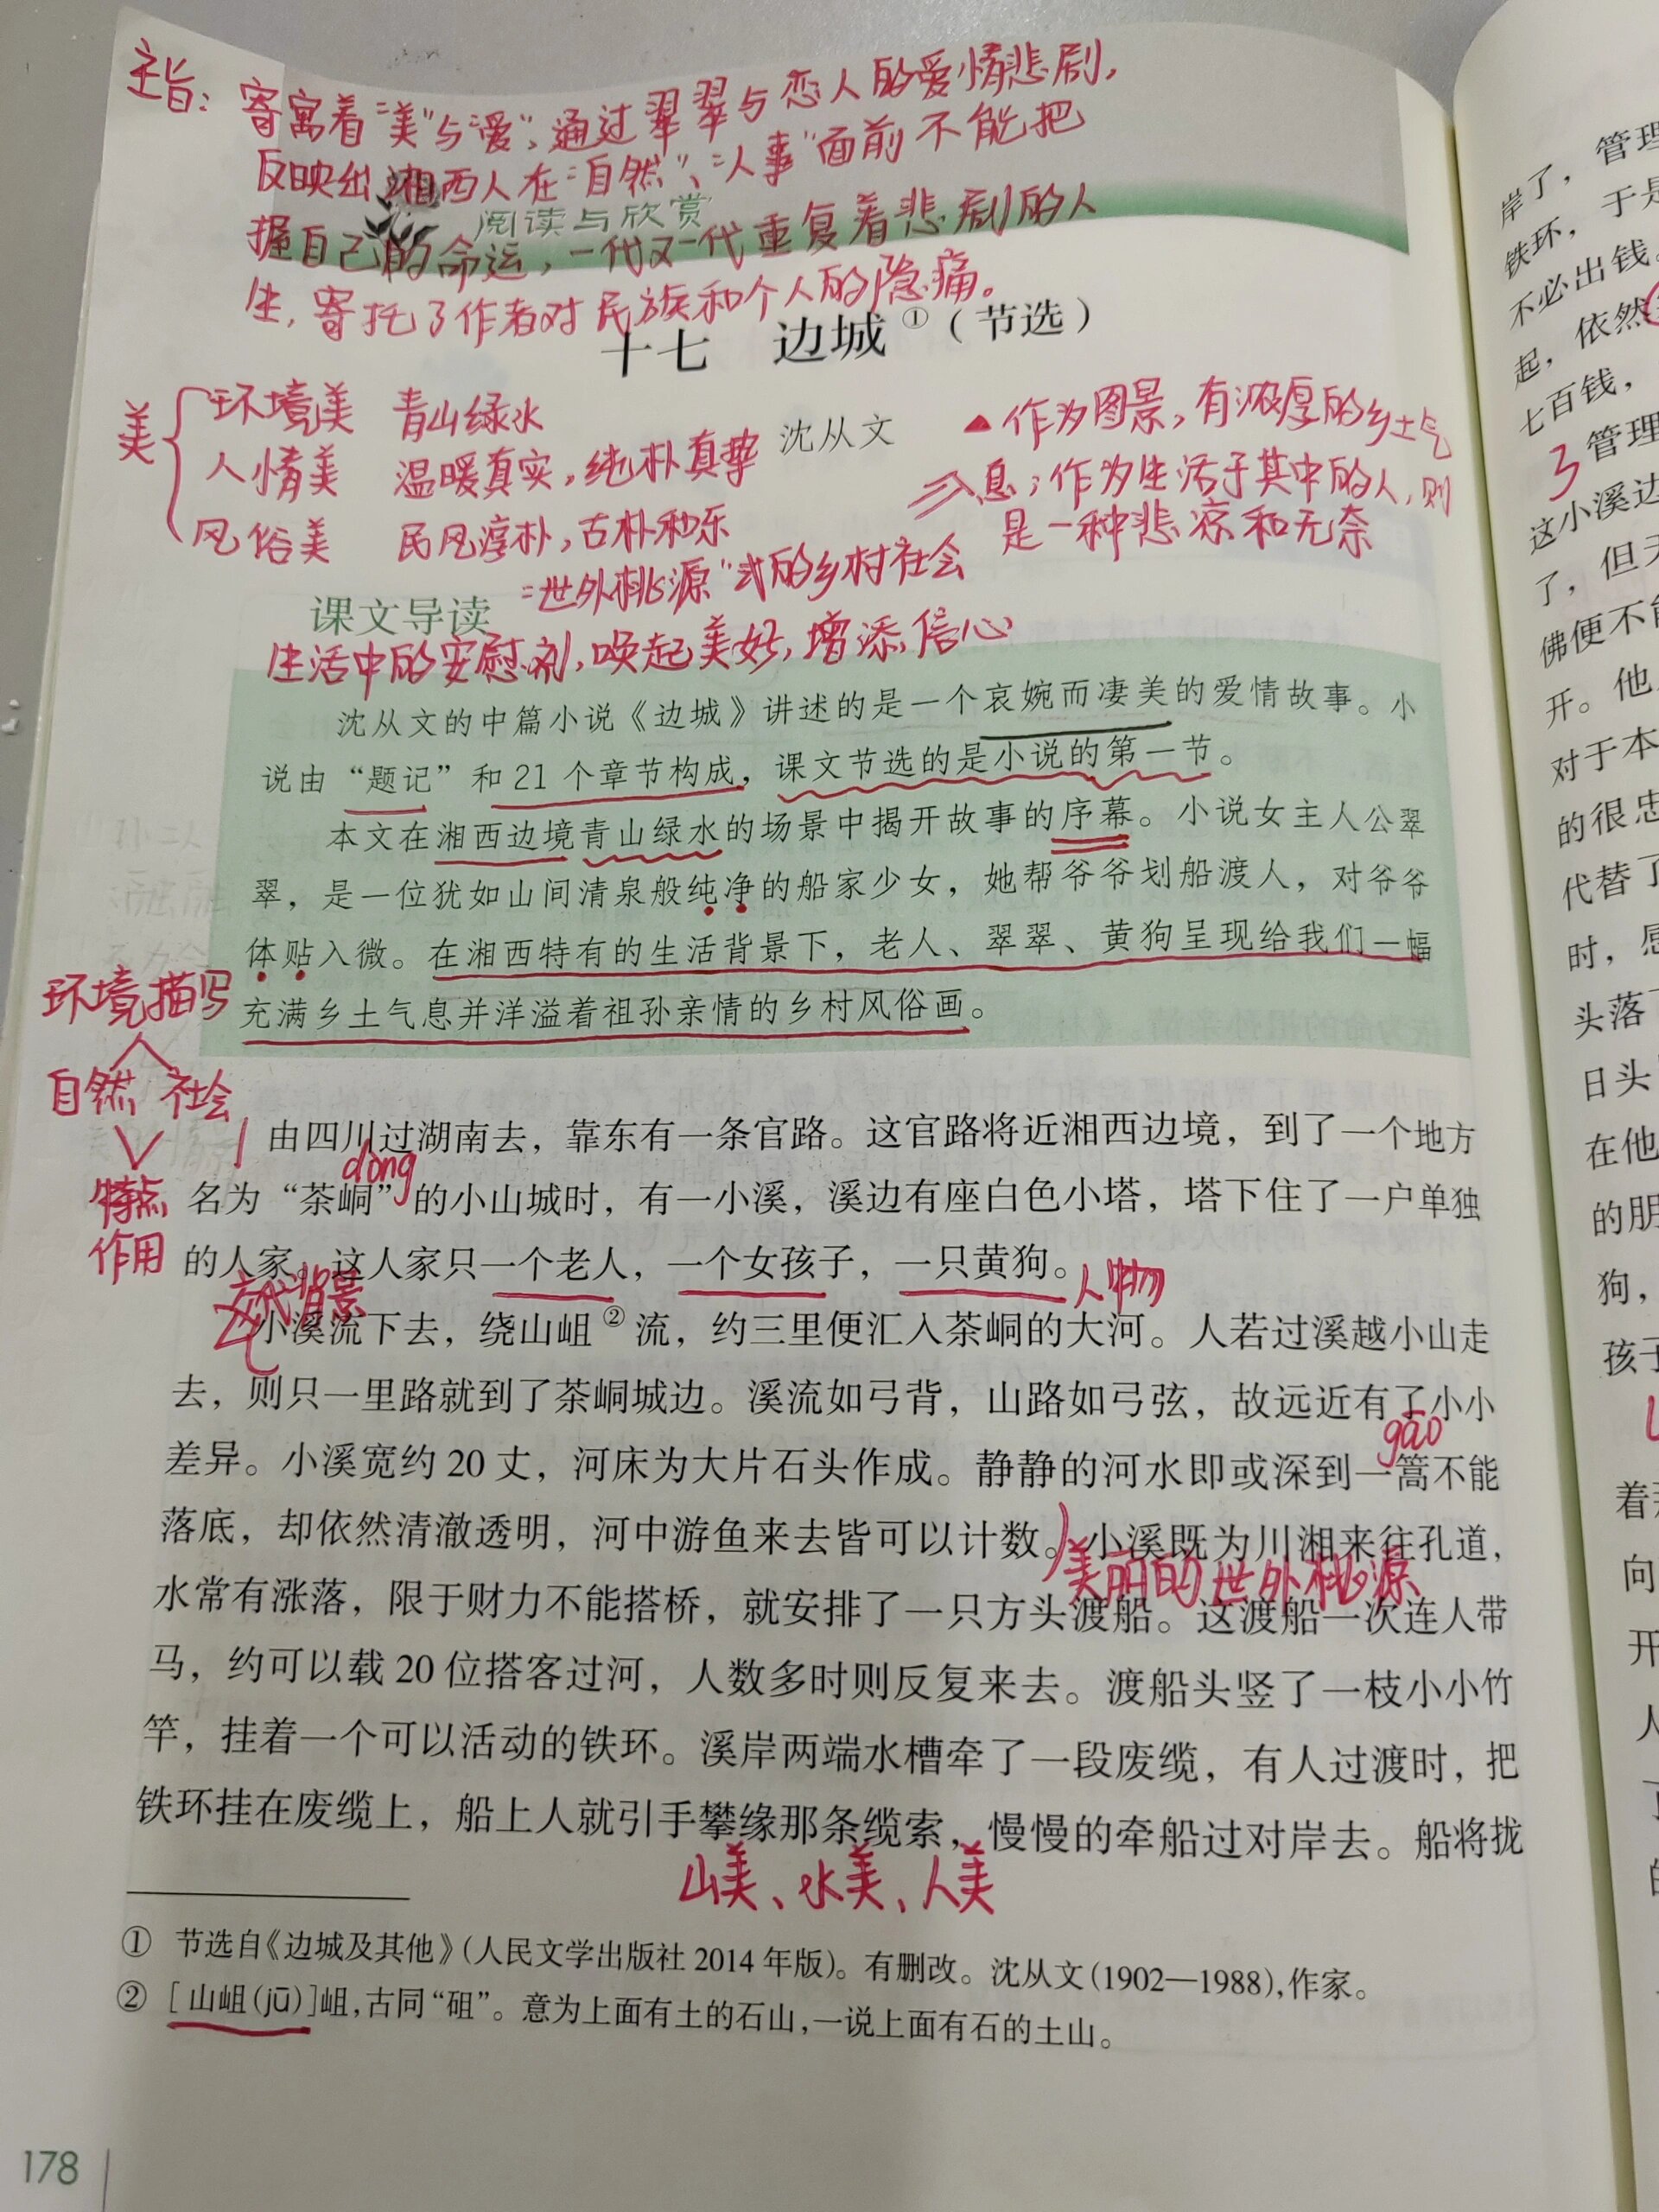 主旨：寄寓着“美”与“爱”，通过翠翠与恋人的爱情悲剧，
反映出湘西人在“自然”、“人事”面前不能把
阅读与欣赏
握自己的命运，一代又一代重复着悲剧的人
生，寄托了作者对民族和个人的隐痛。
十七 边城①（节选）
美 环境美 青山绿水
人情美 温暖真实，纯朴真挚
风俗美 民风淳朴，古朴和乐
沈从文
▲作为图景，有浓厚的乡土气
息；作为生活于其中的人，则
是一种悲凉和无奈
“世外桃源”式的乡村社会
课文导读
生活中的安慰剂，唤起美好，增添信心
沈从文的中篇小说《边城》讲述的是一个哀婉而凄美的爱情故事。小
说由“题记”和21个章节构成，课文节选的是小说的第一节。
本文在湘西边境青山绿水的场景中揭开故事的序幕。小说女主人公翠
翠，是一位犹如山间清泉般纯净的船家少女，她帮爷爷划船渡人，对爷爷
体贴入微。在湘西特有的生活背景下，老人、翠翠、黄狗呈现给我们一幅
充满乡土气息并洋溢着祖孙亲情的乡村风俗画。
环境描写
自然 社会
特点
作用
1
由四川过湖南去，靠东有一条官路。这官路将近湘西边境，到了一个地方
dòng
名为“茶峒”的小山城时，有一小溪，溪边有座白色小塔，塔下住了一户单独
的人家。这人家只一个老人，一个女孩子，一只黄狗。
人物
交代背景
2
小溪流下去，绕山岨②流，约三里便汇入茶峒的大河。人若过溪越小山走
去，则只一里路就到了茶峒城边。溪流如弓背，山路如弓弦，故远近有了小小
gāo
差异。小溪宽约20丈，河床为大片石头作成。静静的河水即或深到一篙不能
落底，却依然清澈透明，河中游鱼来去皆可以计数。小溪既为川湘来往孔道，
美丽的世外桃源
水常有涨落，限于财力不能搭桥，就安排了一只方头渡船。这渡船一次连人带
马，约可以载20位搭客过河，人数多时则反复来去。渡船头竖了一枝小小竹
竿，挂着一个可以活动的铁环。溪岸两端水槽牵了一段废缆，有人过渡时，把
铁环挂在废缆上，船上人就引手攀缘那条缆索，慢慢的牵船过对岸去。船将拢
山美、水美、人美
① 节选自《边城及其他》（人民文学出版社2014年版）。有删改。沈从文（1902—1988），作家。
② [山岨(jū)]岨，古同“砠”。意为上面有土的石山，一说上面有石的土山。
178
岸了，管理
铁环，于是
不必出钱。
起，依然
七百钱，
3 管理
这小溪边
了，但天
佛便不能
开。他
对于本
的很忠
代替了
时，感
头落
日头
在他
的朋
狗，
孩子
着
向
开
人